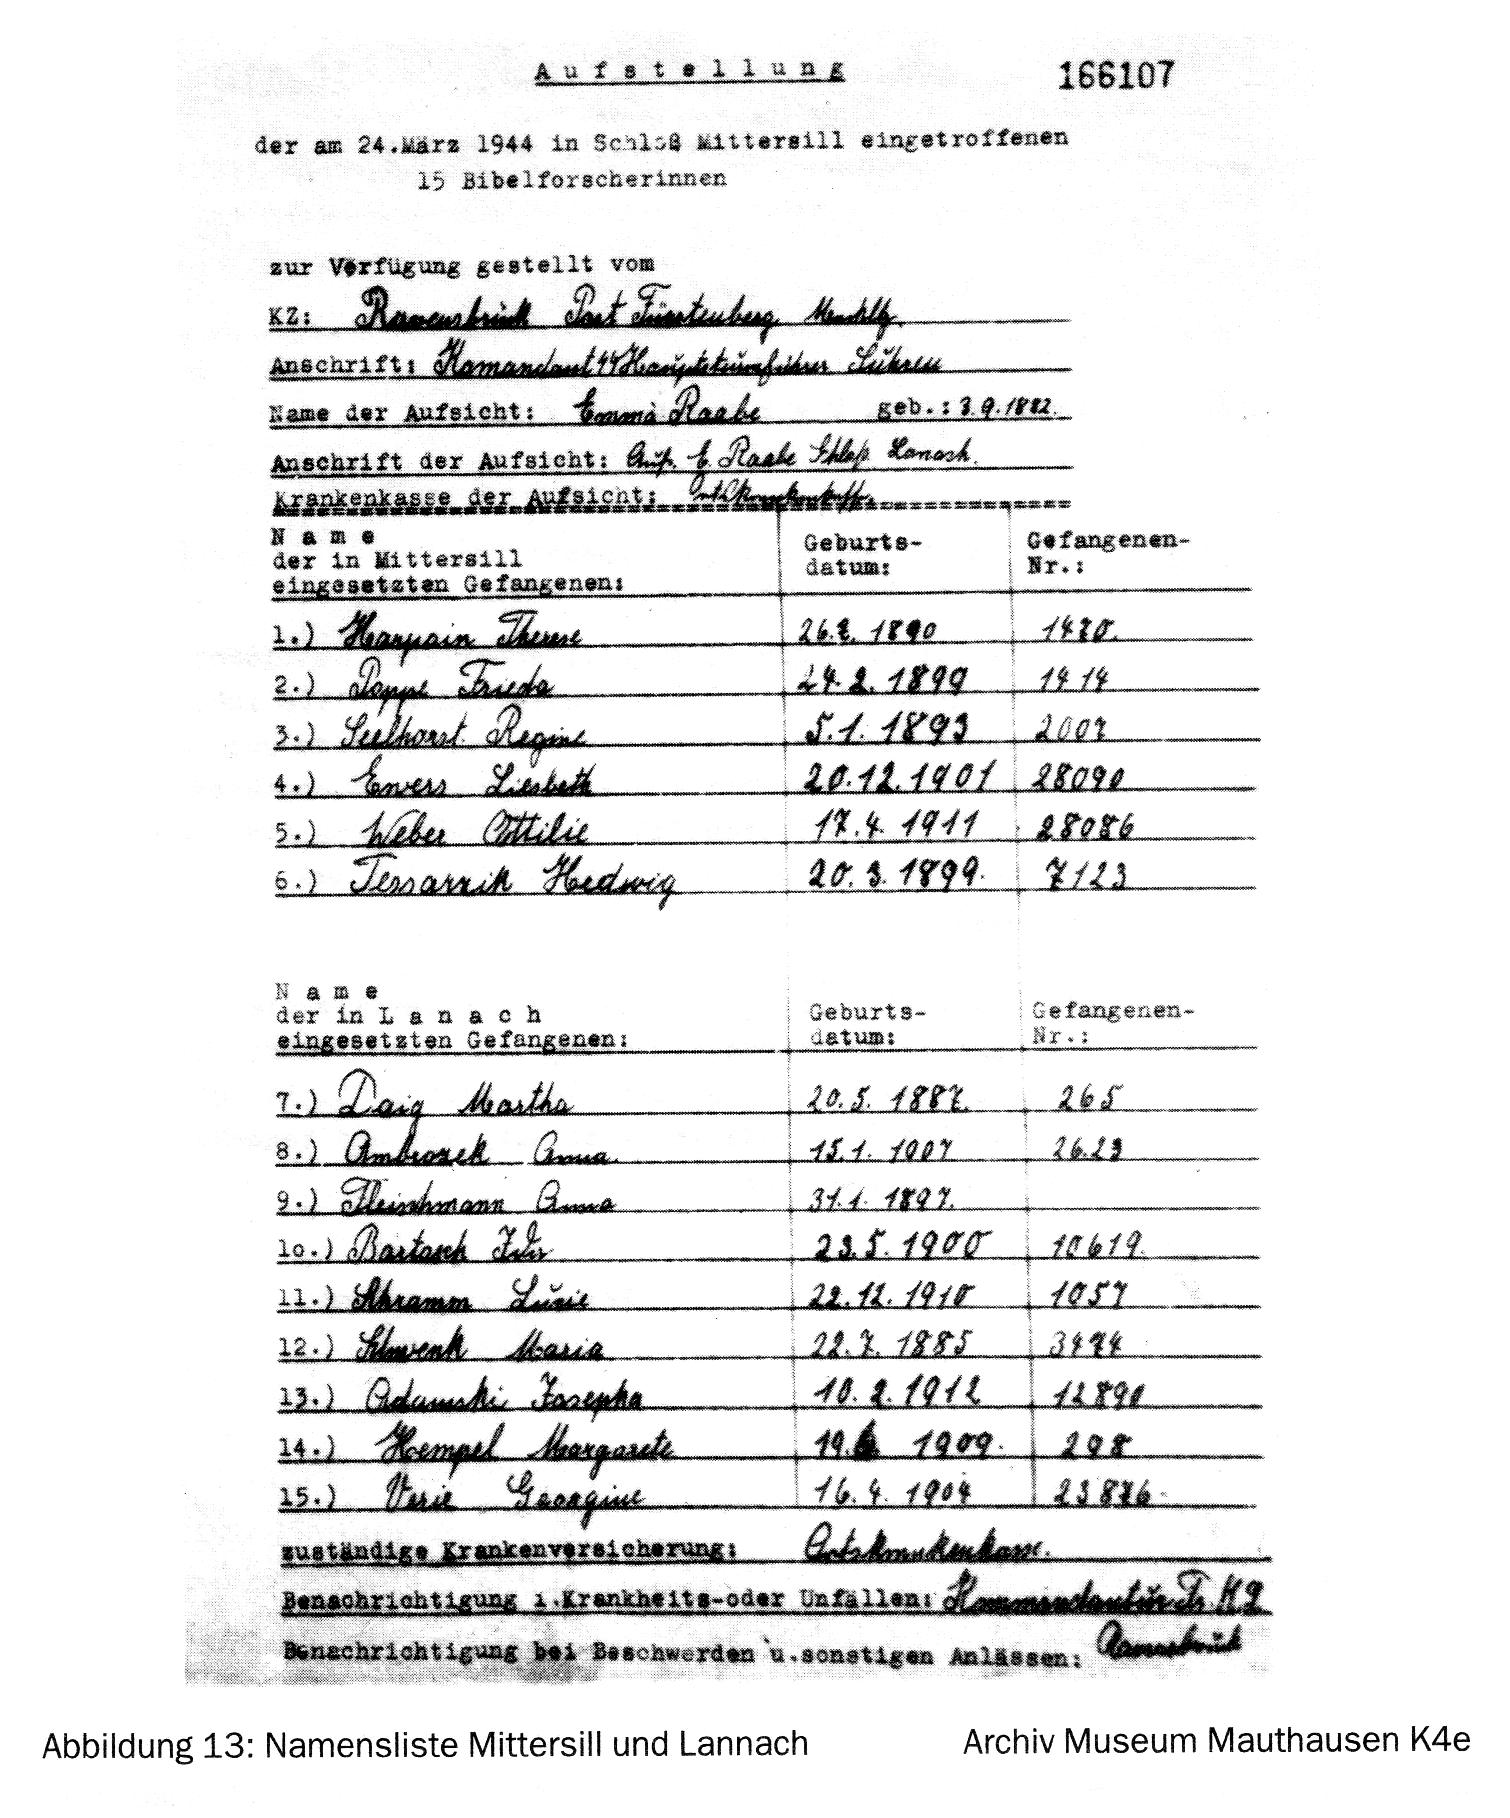 Aufstellung
166107
der am 24.März 1944 in Schloß Mittersill eingetroffenen
15 Bibelforscherinnen
zur Verfügung gestellt vom
KZ: Ravensbrück Post Fürstenberg Mecklbg.
Anschrift: Komandant SS Hauptsturmführer Suhren
Name der Aufsicht: Emma Raabe geb.: 3.9.1882.
Anschrift der Aufsicht: Auf. E. Raabe Schloß Lanach.
Krankenkasse der Aufsicht: Ortskrankenkasse
Name
der in Mittersill
eingesetzten Gefangenen:
Geburts-
datum:
Gefangenen-
Nr.:
1.) Harpain Therese 1890
2.) Poppe Frieda 24.2.1899 1414
3.) Seelhorst Regine 5.1.1893 2007
4.) Ewers Liesbeth 20.12.1901 28090
5.) Weber Ottilie 17.4.1911 28086
6.) Tessarzik Hedwig 20.3.1899. 7123
Name
der in Lanach
eingesetzten Gefangenen:
Geburts-
datum:
Gefangenen-
Nr.:
7.) Daig Martha 20.5.1887. 265
8.) Ambrozek Anna 15.1.1907 2623
9.) Fleischmann Anna 31.1.1897.
10.) Bartosch 23.5.1900 10619
11.) Schramm Luzie 22.12.1910 1057
12.) Schwenk Maria 22.7.1885
13.) Adamski Josepha 10.2.1912 12890
14.) Hempel Margarete 1909. 298
15.) Verie Georgine 16.4.1904 23876
zuständige Krankenversicherung: Ortskrankenkasse.
Benachrichtigung i.Krankheits-oder Unfällen: Kommandantur
Benachrichtigung bei Beschwerden u.sonstigen Anlässen: Ravensbrück
Abbildung 13: Namensliste Mittersill und Lannach
Archiv Museum Mauthausen K4e